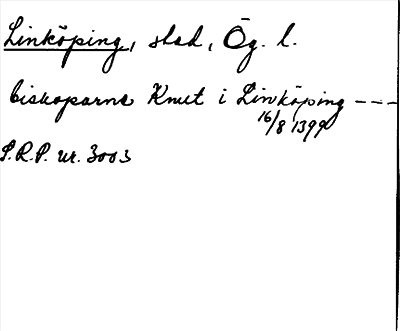 Linköping, stad, Ög. l.
biskoparna Knut i Linköping ---
16/8 1399
S.R.P. nr. 3003